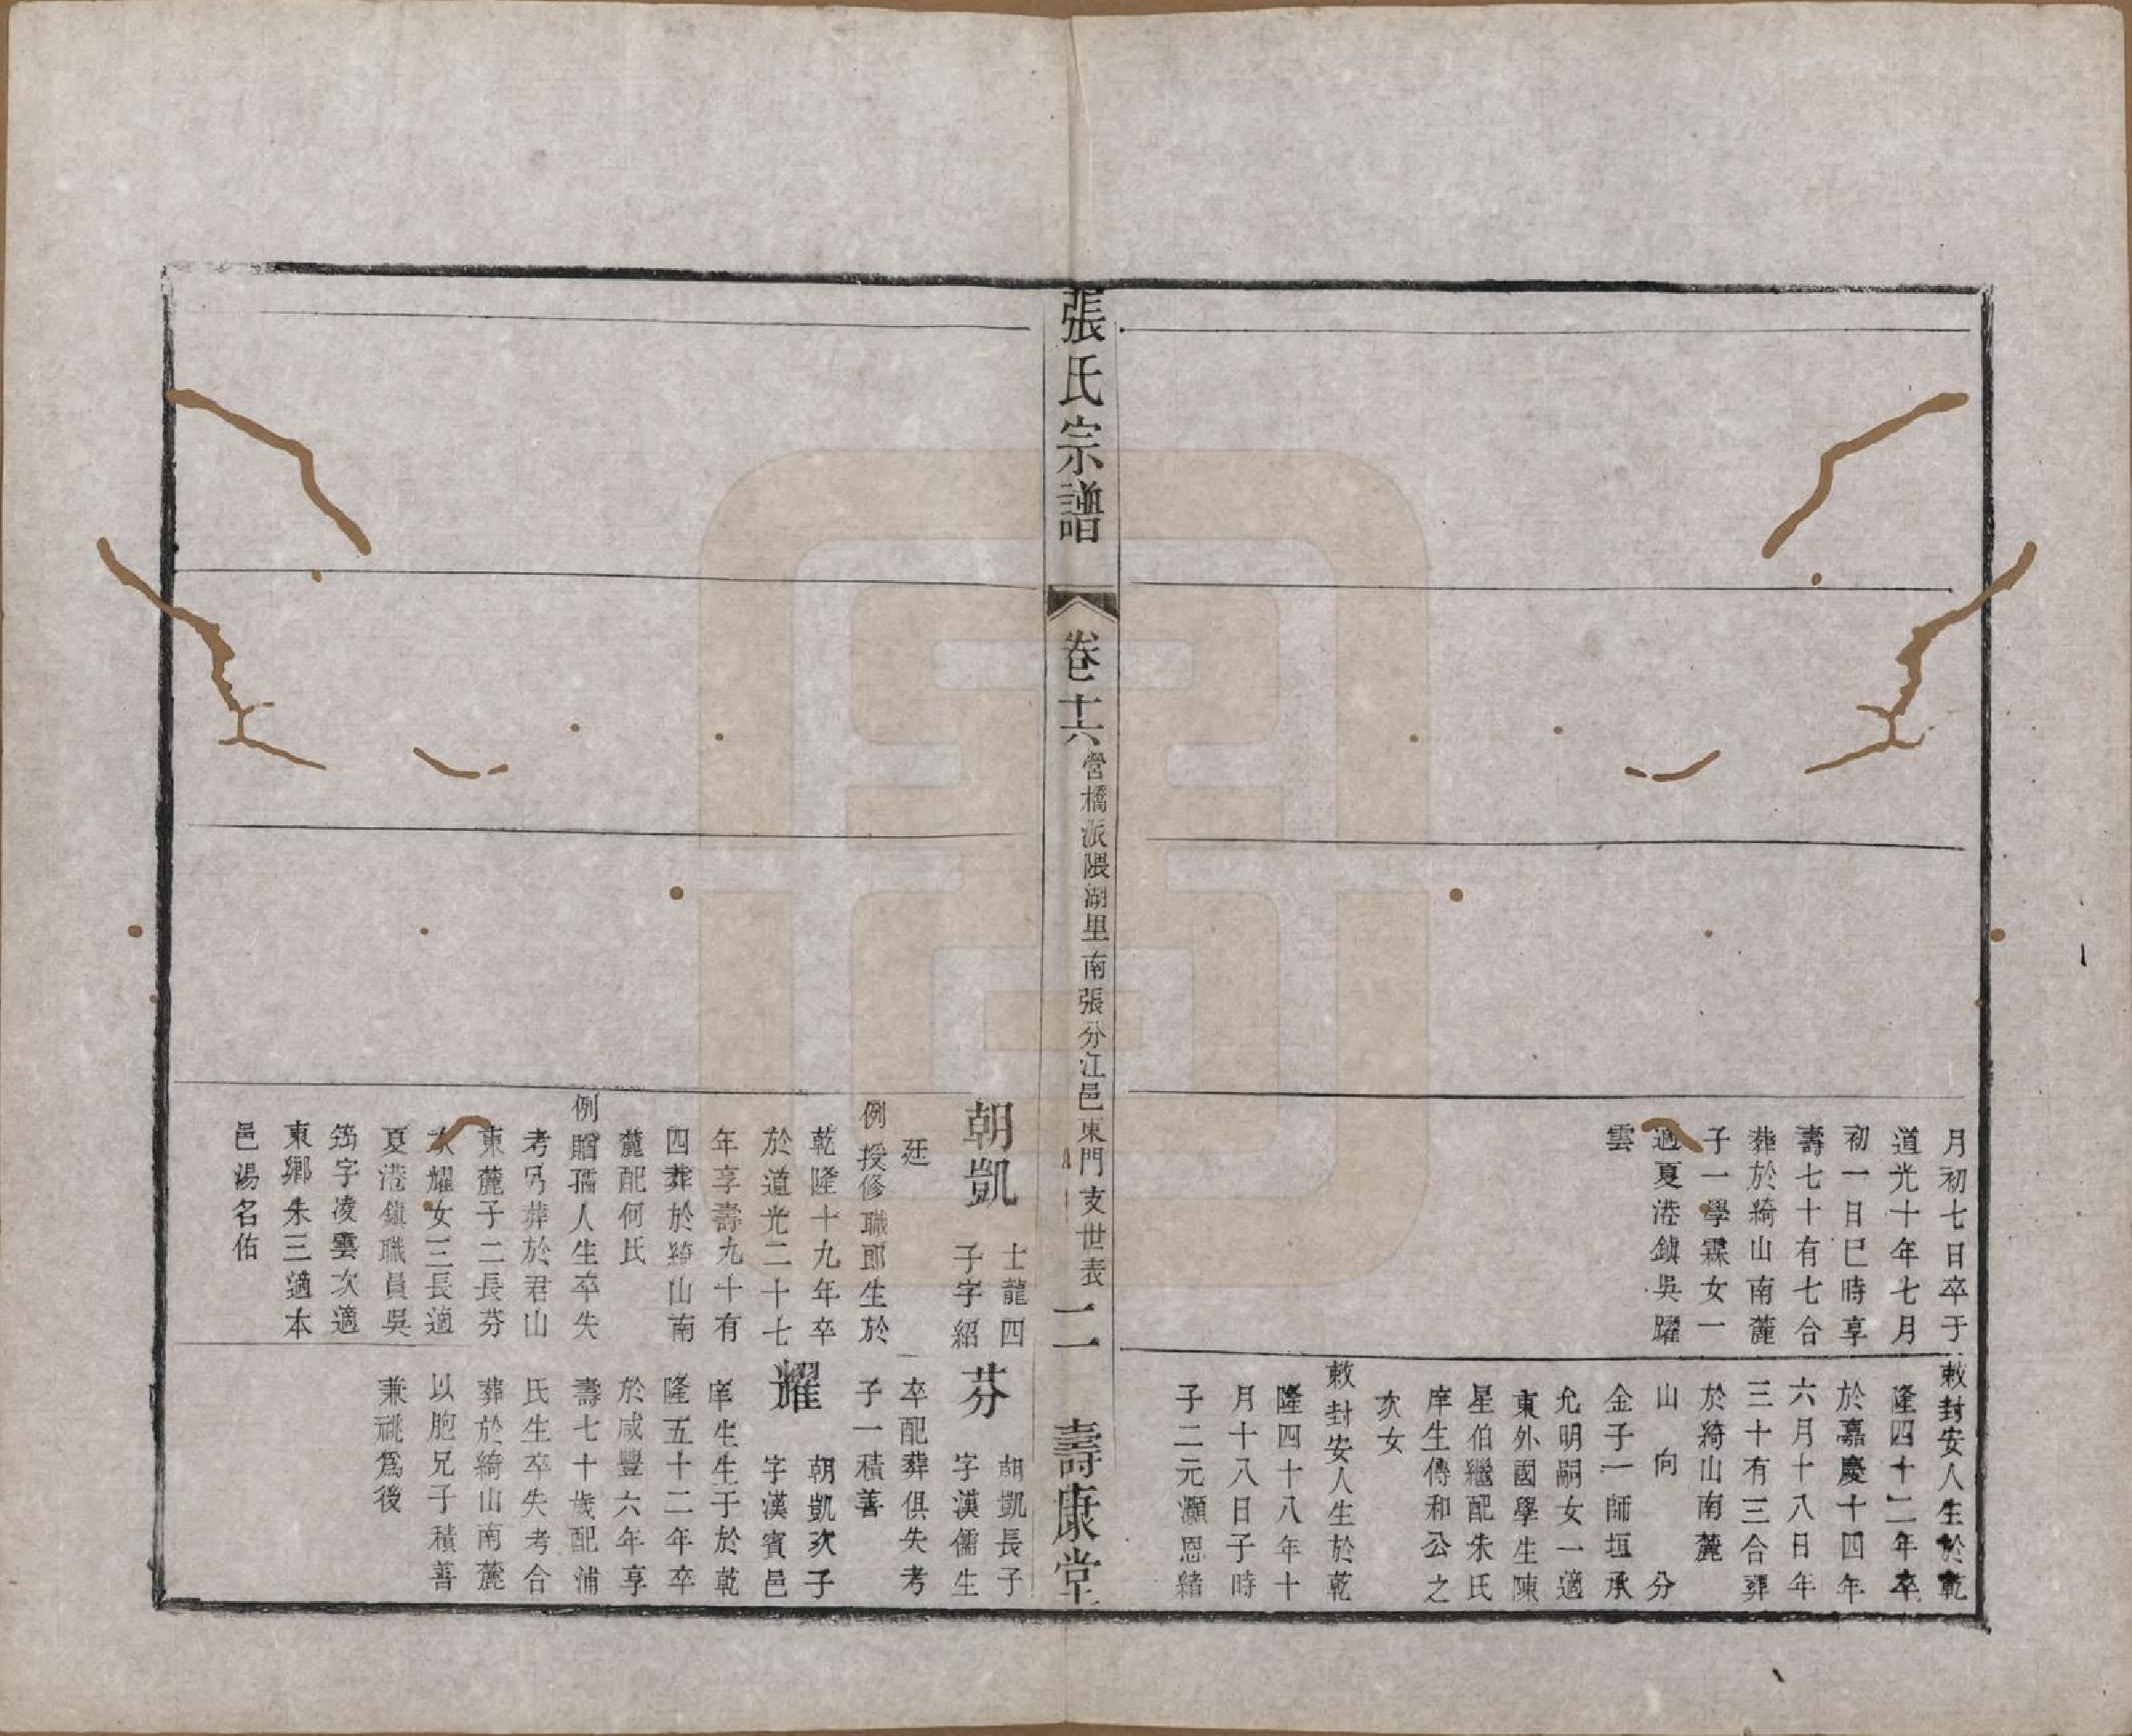 月初七日卒于
道光十年七月
初一日巳時享
壽七十有七合
葬於綺山南麓
子一學霖女一
適夏港鎮吳躍
雲
敕封安人生於乾
隆四十二年卒
於嘉慶十四年
六月十八日年
三十有三合葬
於綺山南麓
山向分
金子一師垣承
允明嗣女一適
東外國學生陳
星伯繼配朱氏
庠生傳和公之
次女
敕封安人生於乾
隆四十八年十
月十八日子時
子二元灝恩緒
張氏宗譜
卷十六
營橋派隈湖里南張分江邑東門支世表
二
壽康堂
朝凱
士龍四
子字紹
廷
例授修職郎生於
乾隆十九年卒
於道光二十七
年享壽九十有
四葬於綺山南
麓配何氏
例贈孺人生卒失
考另葬於君山
東麓子二長芬
次耀女三長適
夏港鎮職員吳
筠字凌雲次適
東鄉朱三適本
邑湯名佑
芬
朝凱長子
字漢儒生
卒配葬俱失考
子一積善
耀
朝凱次子
字漢賓邑
庠生生于於乾
隆五十二年卒
於咸豐六年享
壽七十歲配浦
氏生卒失考合
葬於綺山南麓
以胞兄子積善
兼祧爲後